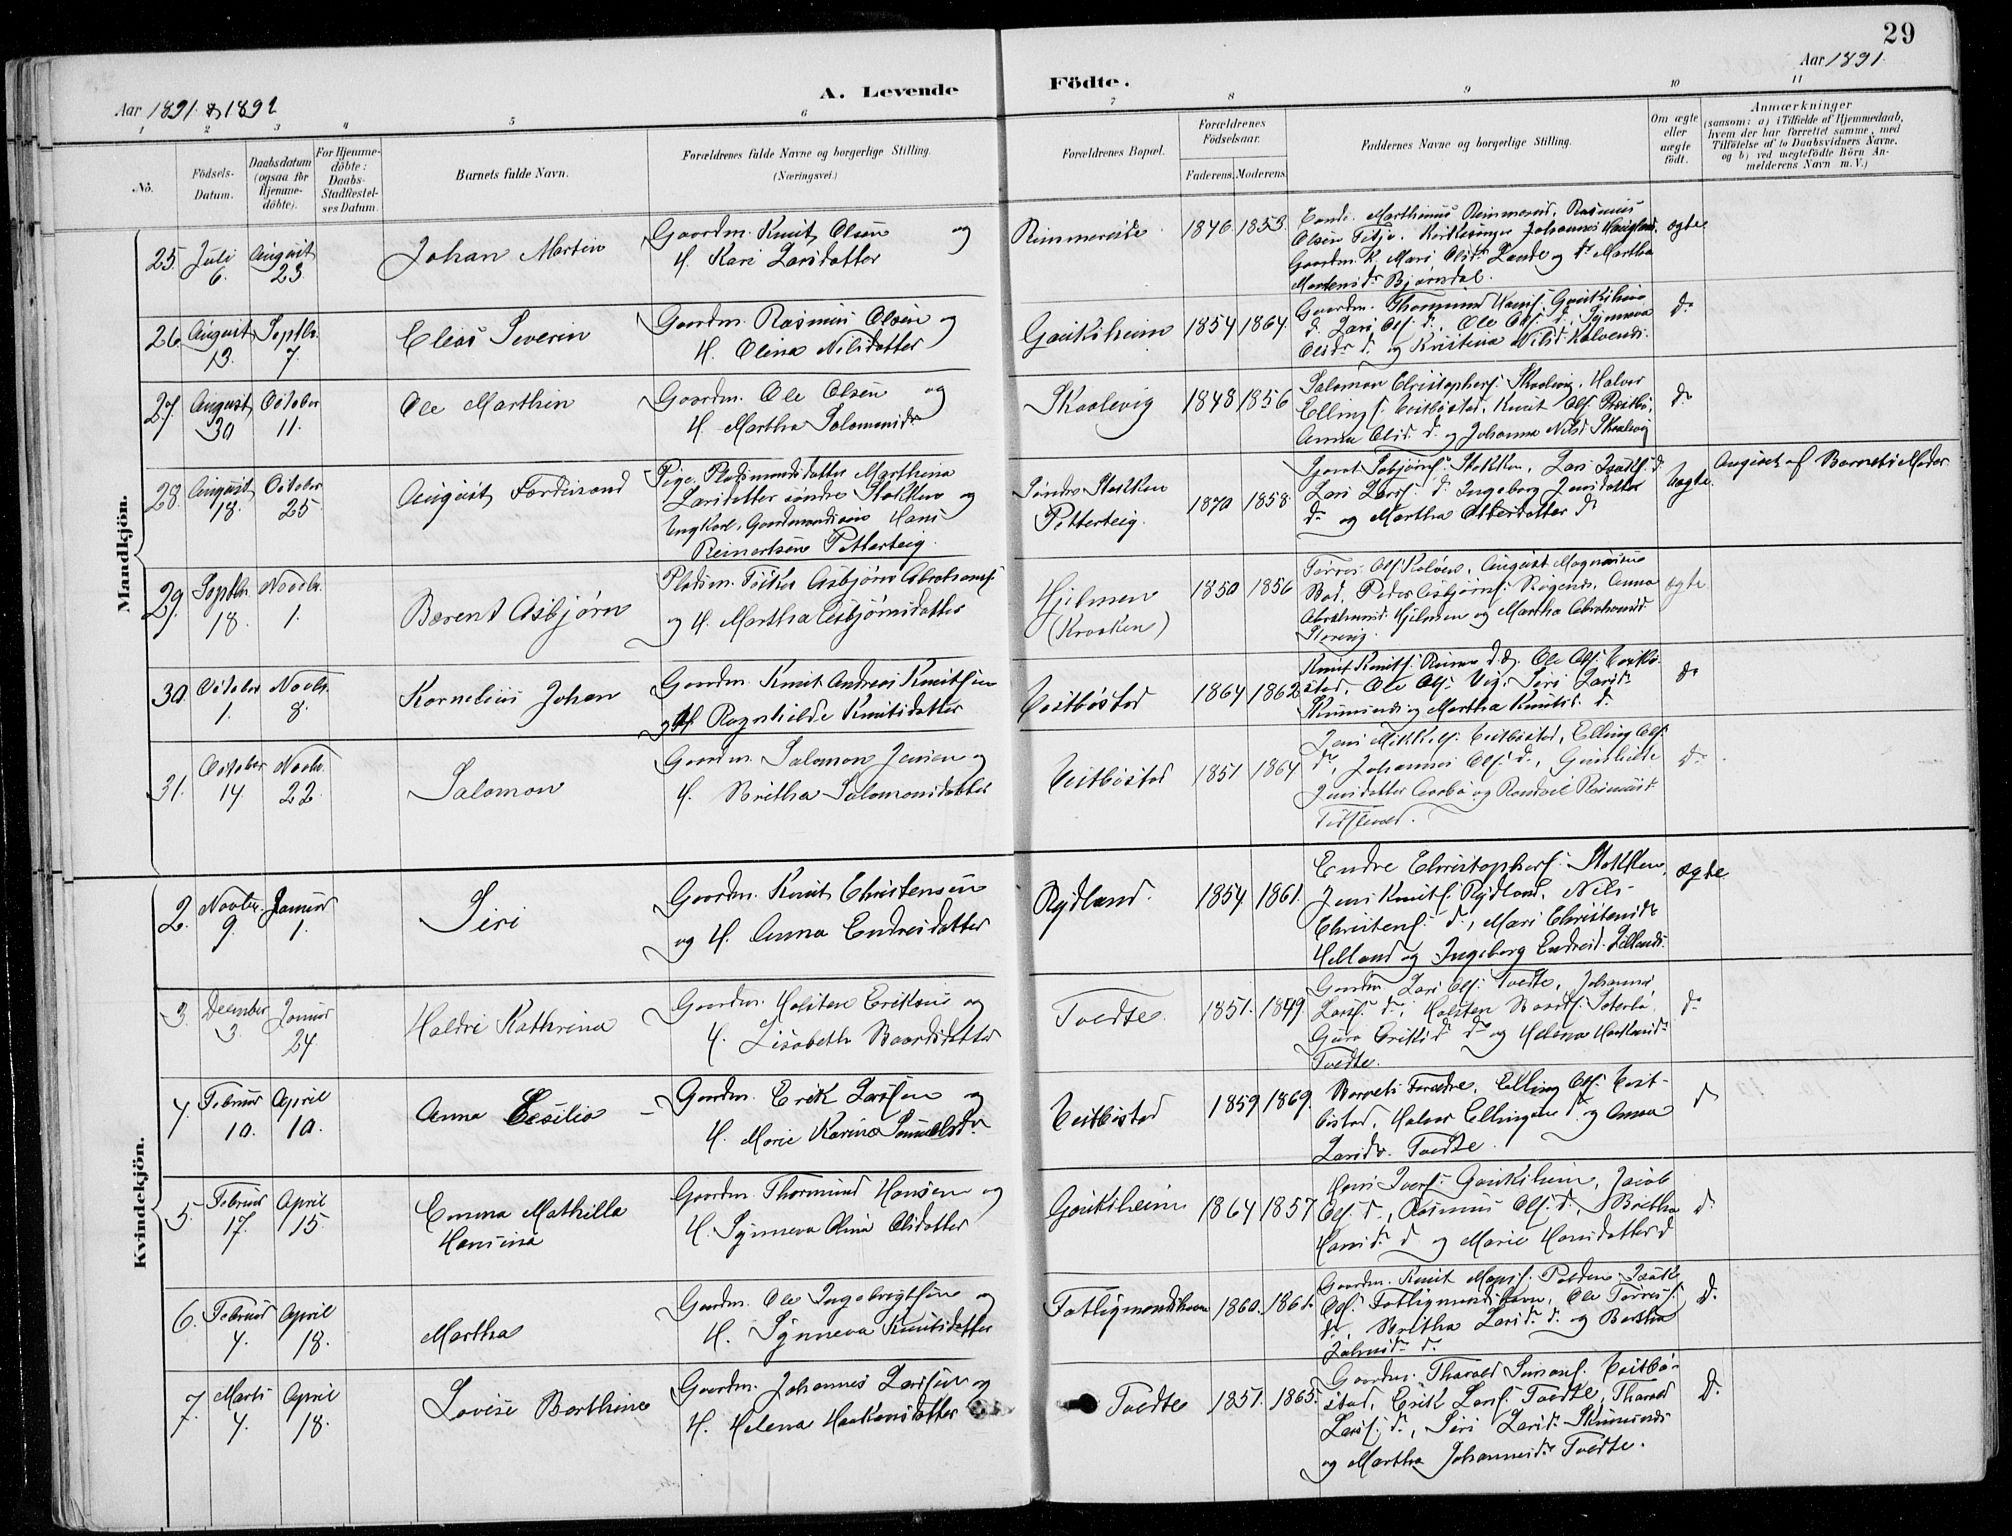 29
Aar 1891 & 1892
A. Levende
Födte.
Aar 1891
1 2 3 4 5 6 7 8 9 10 11
No.
Födsels-
Datum.
Daabsdatum
(ogsaa for
Hjemme-
döbte).
For Hjemme-
döbte:
Daabs-
Stadfæstel-
ses Datum.
Barnets fulde Navn.
Forældrenes fulde Navne og borgerlige Stilling.
(Næringsvei.)
Forældrenes Bopæl.
Forældrenes
Födselsaar.
Faderens. Moderens.
Faddernes Navne og borgerlige Stilling.
Om ægte
eller
uægte
födt.
Anmærkninger
(saasom: a) i Tilfælde af Hjemmedaab,
hvem der har forrettet samme, med
Tilföielse af to Daabsvidners Navne,
og b) ved uægtefödte Börn An-
melderens Navn m. V.)
Mandkjön.
25. Juli 6. August 23
Johan Martin
Gaardm. Knut Olsen og
H. Kari Larsdatter
Rimmereide
1846 1853
Olsen Fitje. Kirkesanger Johannes
Gaardm. K. Mari Olsdr Lande og dr Martha
Mortensdr Bjørndal.
ægte
26. August 13. Septbr. 7.
Elias Severin
Gaardm. Rasmus Olsen og
H. Olina Nilsdatter
Gauksheim
1854 1864.
Gaardm. Thormund Hansf. Gauksheim
d. Lars Olsf. d., Ole Olsf. d., Synneva
Olsdr d. og Kristina Nilsd. Kalvenes.
do
27. August 30 October 11.
Ole Marthin
Gaardm. Ole Olsen og
H. Martha Salomonsdr
Skaalevig
1848 1856
Salomon Christophersf. Skaalevig, Halvor
Ellingsf. Veitbøstad, Knut Olsf.
Anna Olsd. d. og Johanna Nilsd Skaalevig
do
28. August 18. October 25
August Ferdinand
Pige, Pladsmandsdatter Marthina
Larsdatter søndre Stokken og
Ungkarl, Gaardmandssøn Hans
Reinertsen Petterteig.
Søndre Stokken
Petterteig.
1870 1858
Lars Larsf. d. Ingeborg Jensdatter
d. og Martha Ottersdatter d
Uægte
Angivet af Barnets Moder.
29. Septbr. 18. Novbr. 1.
Berent Asbjørn
Pladsm. Fisker Asbjørn Abrahamsf.
og H. Martha Asbjørnsdatter
Hjelmen
(Kraaken)
1850 1856
Torres Olsf. Kalven, August Magnusen
Bad, Peder Asbjørnsf. Røgenes, Anna
Abrahamsd. Hjelmen og Martha Abrahamsd
Storevig.
ægte
30. October 1. Novbr. 8.
Kornelius Johan
Gaardm. Knut Andreas Knutsen
og H Ragnhilde Knutsdatter
Veitbøstad
1864 1862
Knut Knutsf. Ole Olsf. Veitbø-
stad, Ole Olsf. Vig, Siri Larsd.
Skumsnes og Martha Knutsd. d.
do
31. October 14 Novbr. 22
Salomon
Gaardm. Salomon Jensen og
H. Britha Salomonsdatter
Veitbøstad
1851 1864
Jens Mikkelsf. Veitbøstad, Elling Olsf.
d., Johannes Olsf. d., Gunhilde
do
Kvindekjön.
2. Novbr. 9. Januar 1.
Siri
Gaardm. Knut Christensen
og H. Anna Endresdatter
Rydland.
1854 1861.
Endre Christophersf. Stokken,
Jens Knutsf. Rydland, Nils
Christensf. d., Mari Christensdr
Helland og Ingeborg Endresd.
ægte
3. December 3. Januar 24
Haldri Kathrina
Gaardm. Halsten Eriksen og
H. Lisabeth Baardsdatter
Tvedte.
1851. 1849.
Gaardm. Lars Olsf. Tvedte, Johannes
Larsf. d., Halsten Baardsf.
Guro Eriksd. do og Helena Haakonsd.
Tvedte.
do
4. Februar 10. April 10.
Anna Cesilia
Gaardm. Erik Larsen og
H. Marie Karina Samuelsdr
Veitbøstad
1859 1869.
Barnets Forældre, Elling Olsf. Veit-
bøstad, Halvor Ellingsen d. og Anna
Larsdr. Tvedte.
d
5. Februar 17. April 15.
Emma Mathilla
Hansina
Gaardm. Thormund Hansen og
H. Synneva Olina Olsdatter
Gauksheim
1864 1857
Hans Iversf. Gauksheim, Jacob
Olsf. d., Rasmus Olsf. d., Britha
Hansd. d og Marie Hansdatter d
d.
6. Februar 4. April 18.
Martha
Gaardm. Ole Ingebrigtsen og
H. Synneva Knutsdatter
Fattigmandshavn
1860. 1861.
Gaardm. Knut Monsf.
Olsf. Fattigmandshavn, Ole Torresf.
d., Britha Larsd. d. og Bertha
d.
7. Marts 4. April 18.
Lovise Berthine
Gaardm. Johannes Larsen og
H. Helena Haakonsdatter
Tvedte
1851. 1865.
Gaardm. Tharald Simonsf. Veitbø-
stad, Erik Larsf. Tvedte, Tharald
Larsf. d., Siri Larsd. Skumsnes
og Martha Johannesdr Tvedte.
d.